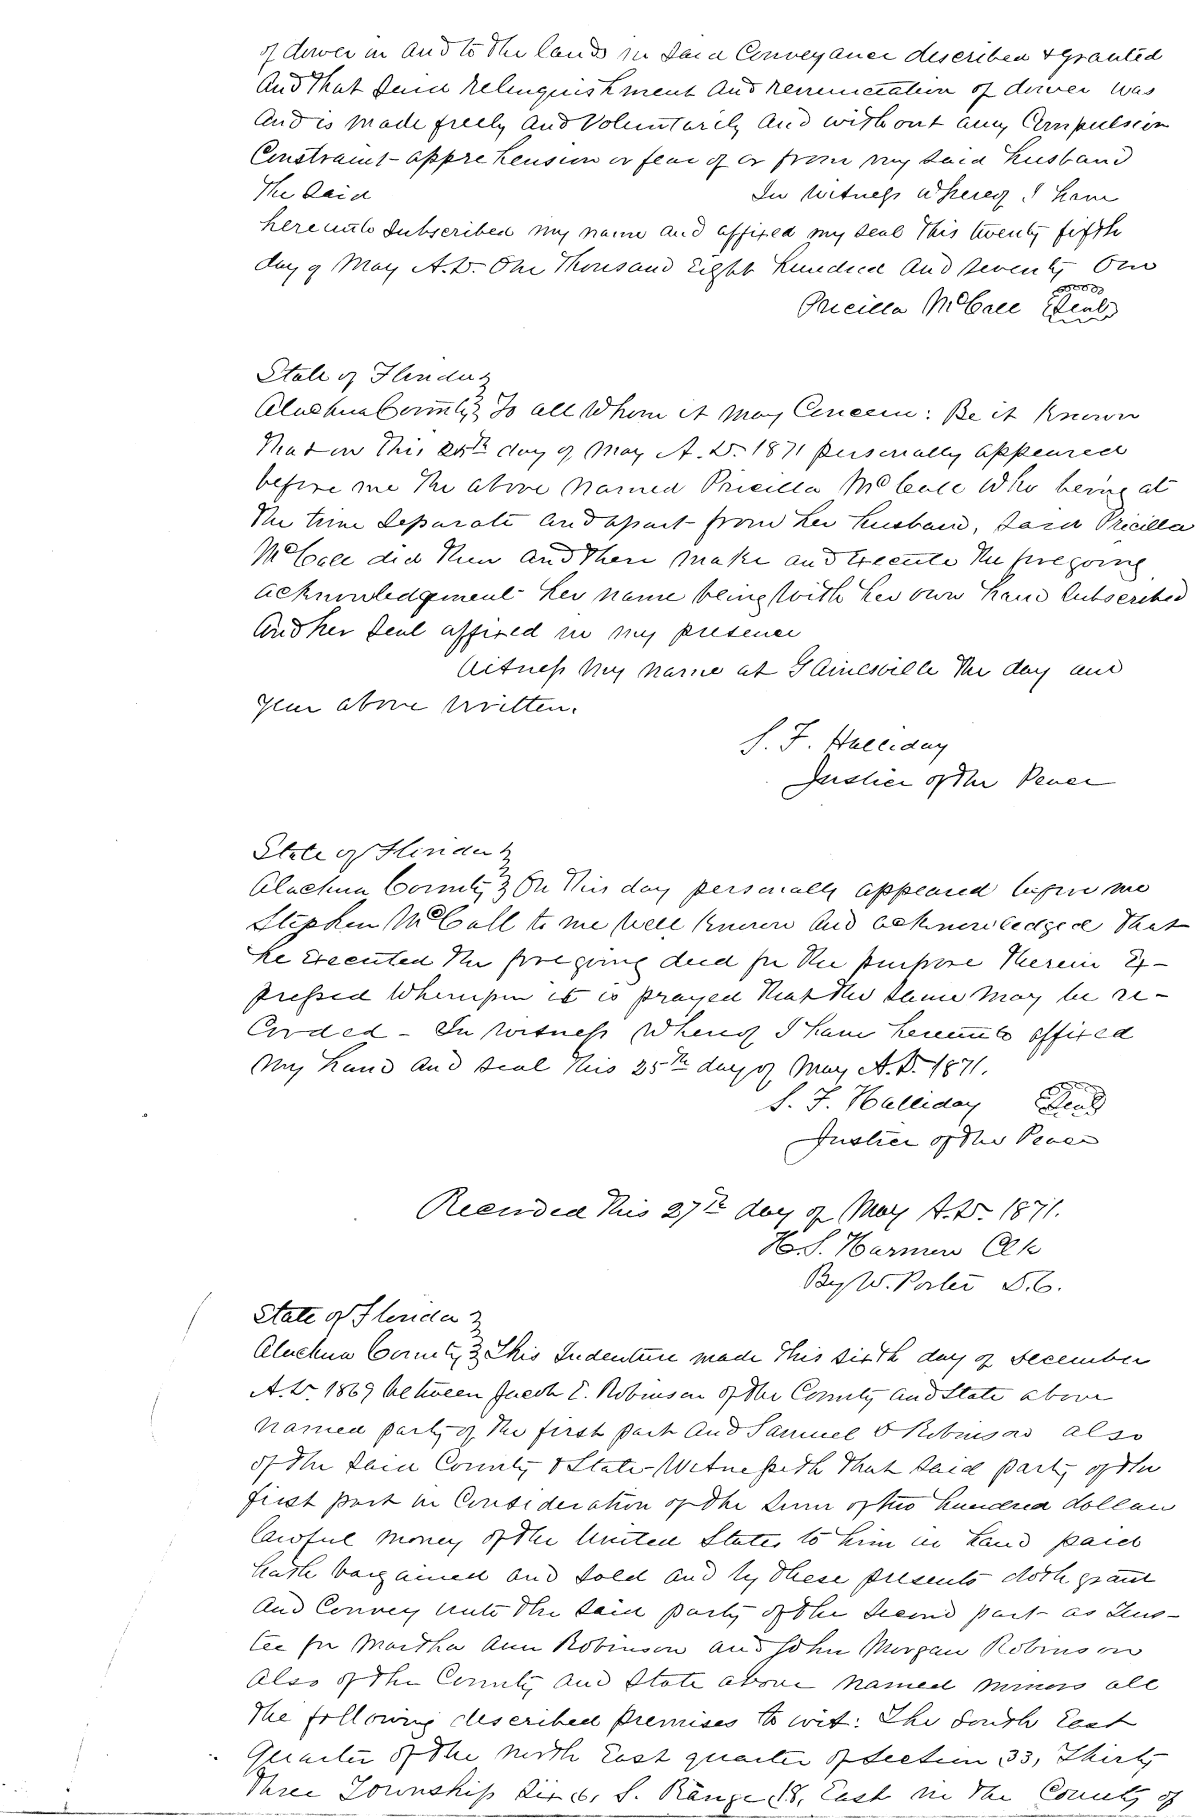 of dower in and to the lands in said Conveyance described & granted
And that said relinquishment and renunciation of dower was
And is made freely and Voluntarily and without any Compulsion
Constraint apprehension or fear of or from my said husband
The said In Witness whereof I have
hereunto subscribed my name and affixed my seal this twenty fifth
day of May A.D. One Thousand Eight hundred and seventy One
Pricilla McCall Seal
State of Florida
Alachua County To all Whom it may Concern: Be it Known
That on this 25th day of May A.D. 1871 personally appeared
before me the above named Pricilla McCall who being at
the time separate and apart from her husband, said Pricilla
McCall did then and there make and Execute the foregoing
acknowledgement her name being with her own hand subscribed
And her seal affixed in my presence
Witness my name at Gainesville the day and
year above written.
S. F. Halliday
Justice of the Peace
State of Florida
Alachua County On this day personally appeared before me
Stephen McCall to me well known and acknowledged that
he Executed the foregoing deed for the purpose therein Ex-
pressed Whereupon it is prayed that the same may be re-
corded - In witness whereof I have hereunto affixed
my hand and seal this 25th day of May A.D. 1871.
S. F. Halliday Seal
Justice of the Peace
Recorded this 27th day of May A.D. 1871.
H. S. Harmon Clk
By W. Porter D.C.
State of Florida
Alachua County This Indenture made this sixth day of December
A.D. 1869 between Jacob E. Robinson of the County and State above
named party of the first part and Samuel Robinson also
of the said County & State Witnesseth that said party of the
first part in Consideration of the sum of two hundred dollars
lawful money of the United States to him in hand paid
hath bargained and sold and by these presents doth grant
and Convey unto the said party of the second part as Trus-
tee for Martha Ann Robinson and John Morgan Robinson
also of the County and State above named minors all
the following described premises to wit: The South East
Quarter of the North East quarter of Section 33, Thirty
three Township Six 6, S. Range 18, East in the County of